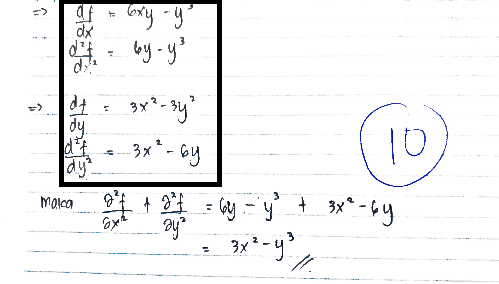 => df/dx = 6xy - y³
d²f/dx² = 6y - y³
=> df/dy = 3x² - 3y²
d²f/dy² = 3x² - 6y
10
maka ∂²f/∂x² + ∂²f/∂y² = 6y - y³ + 3x² - 6y
= 3x² - y³ //